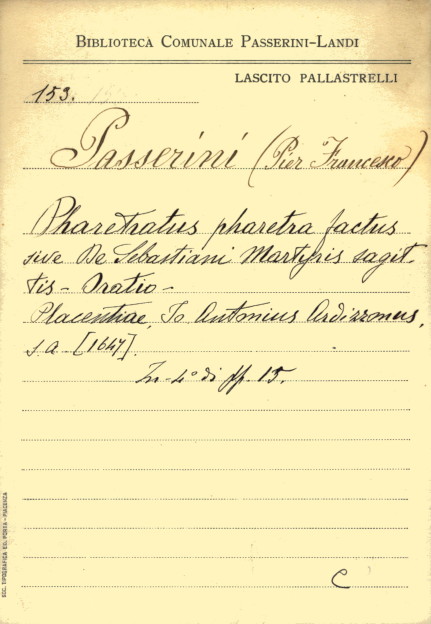 BIBLIOTECA COMUNALE PASSERINI-LANDI
LASCITO PALLASTRELLI
153.
Passerini (Pier Francesco)
Pharetratus pharetra factus
sive De Sebastiani Martyris sagit
tis - Oratio -
Placentiae, Io Antonius Ardizzonus,
s a - [1647].
In-4° di pp. 15.
C
SOC. TIPOGRAFICA ED. PORTA - PIACENZA